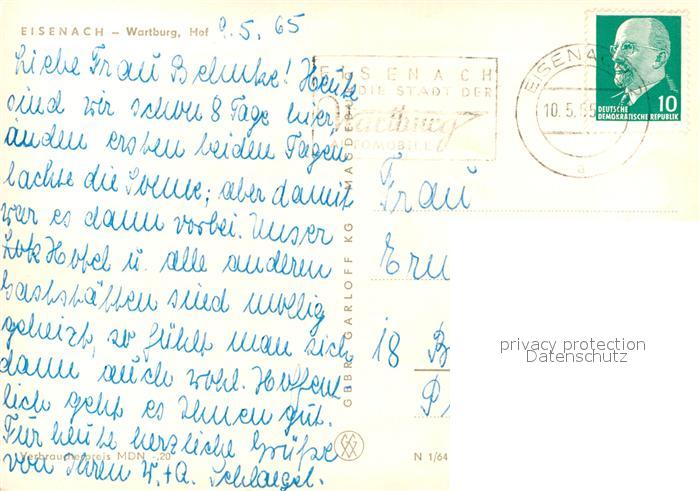 EISENACH – Wartburg, Hof 9.5.65
Liebe Frau Behnke! Heute
sind wir schon 8 Tage hier,
an den ersten beiden Tagen
lachte die Sonne; aber damit
war es dann vorbei. Unser
Hotel u. alle anderen
Gaststätten sind mollig
geheizt, so fühlt man sich
dann auch wohl. Hoffent
lich geht es Ihnen gut.
Für heute herzliche Grüße
von Ihren W. + A. Schlaegel.
Verbraucherpreis MDN -,20
GEBR. GARLOFF KG MAGDEBURG
N 1/64
EISENACH
DIE STADT DER
Wartburg
AUTOMOBILE
EISENACH
10.5.65
a
DEUTSCHE
DEMOKRATISCHE REPUBLIK
10
Frau
18
privacy protection
Datenschutz